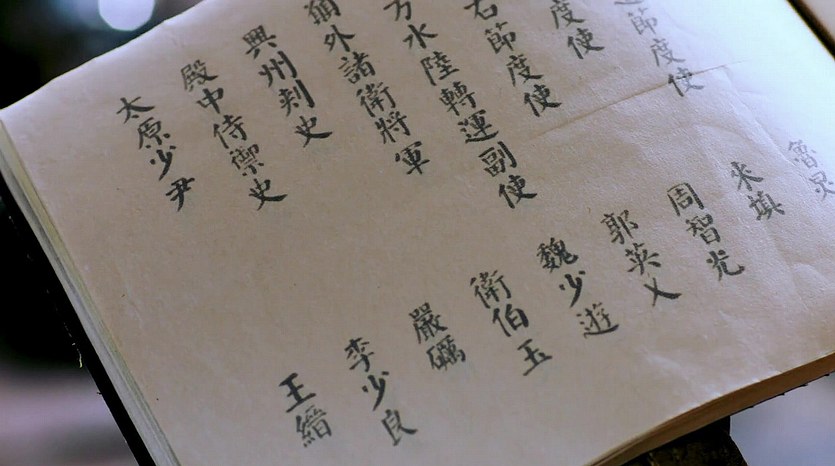 魯炅
節度使 来瑱
度使 周智光
右節度使 郭英乂
方水陸轉運副使 魏少遊
外諸衛將軍 衛伯玉
興州刾史 嚴礪
殿中侍禦史 李少良
太原少尹 王縉